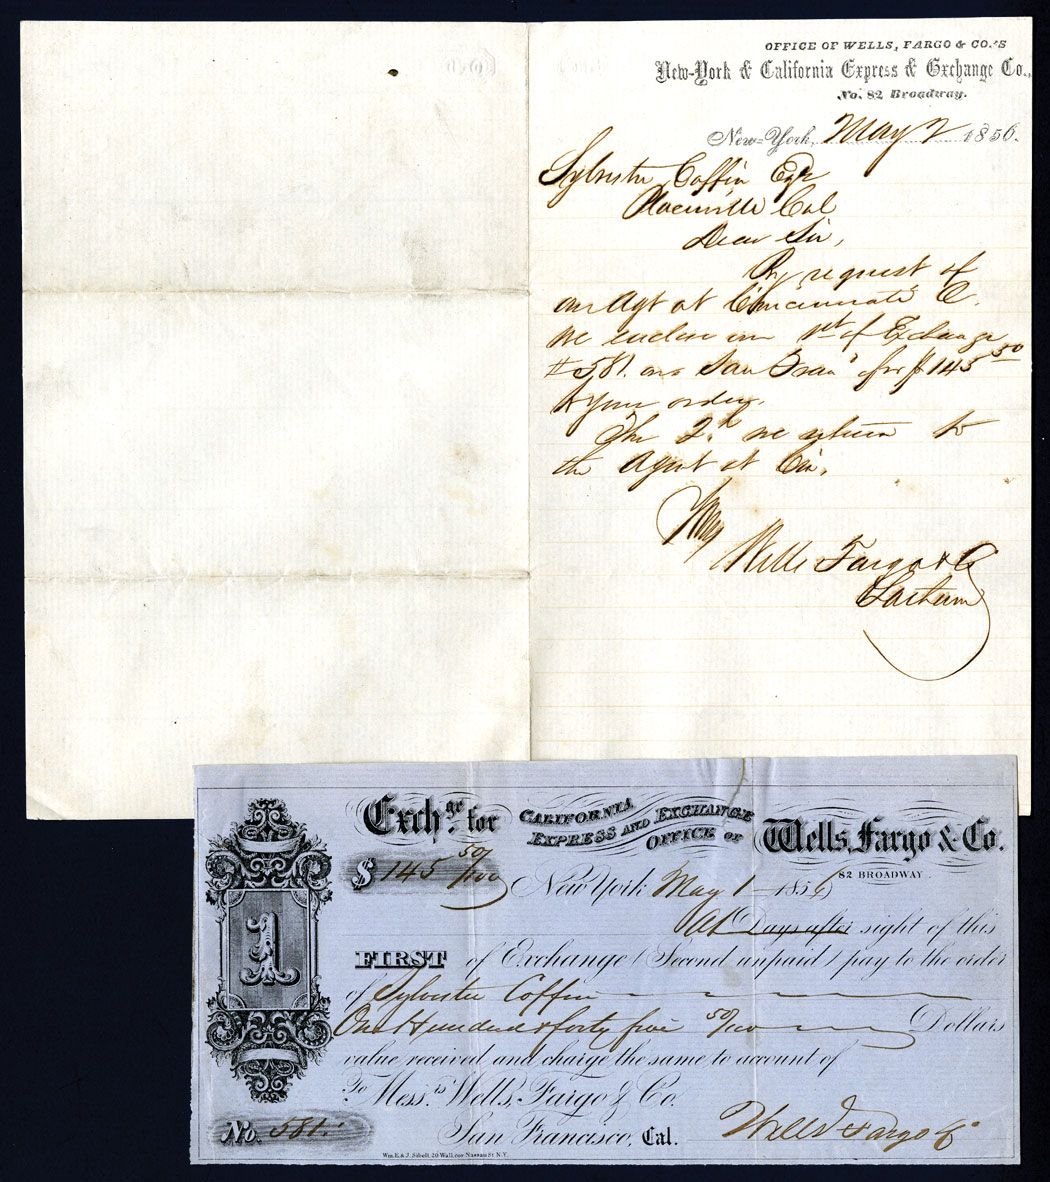 OFFICE OF WELLS, FARGO & CO.'S
New-York & California Express & Exchange Co.,
No. 82 Broadway.
New-York, May 2 1856.
Sylvester Coffin Esqr
Placerville Cal
Dear Sir,
By request of
our Agt at Cincinnati O.
we enclose our 1st of Exchange
#581. on San Fran for $145 50
to your order.
The 2d we return to
the Agent at Cin.
Wells Fargo & Co
Exchge. for CALIFORNIA EXPRESS AND EXCHANGE OFFICE OF Wells, Fargo & Co.
82 BROADWAY
$ 145 50/100 New York May 1 1856
At Days after sight of this
FIRST of Exchange (Second unpaid) pay to the order
of Sylvester Coffin
One Hundred & forty five 50/100 Dollars
value received and charge the same to account of
To Messrs. Wells, Fargo & Co.
San Francisco, Cal. Wells Fargo & Co
No. 581.
1
Wm. E. & J. Sibell, 20 Wall, cor Nassau St. N.Y.